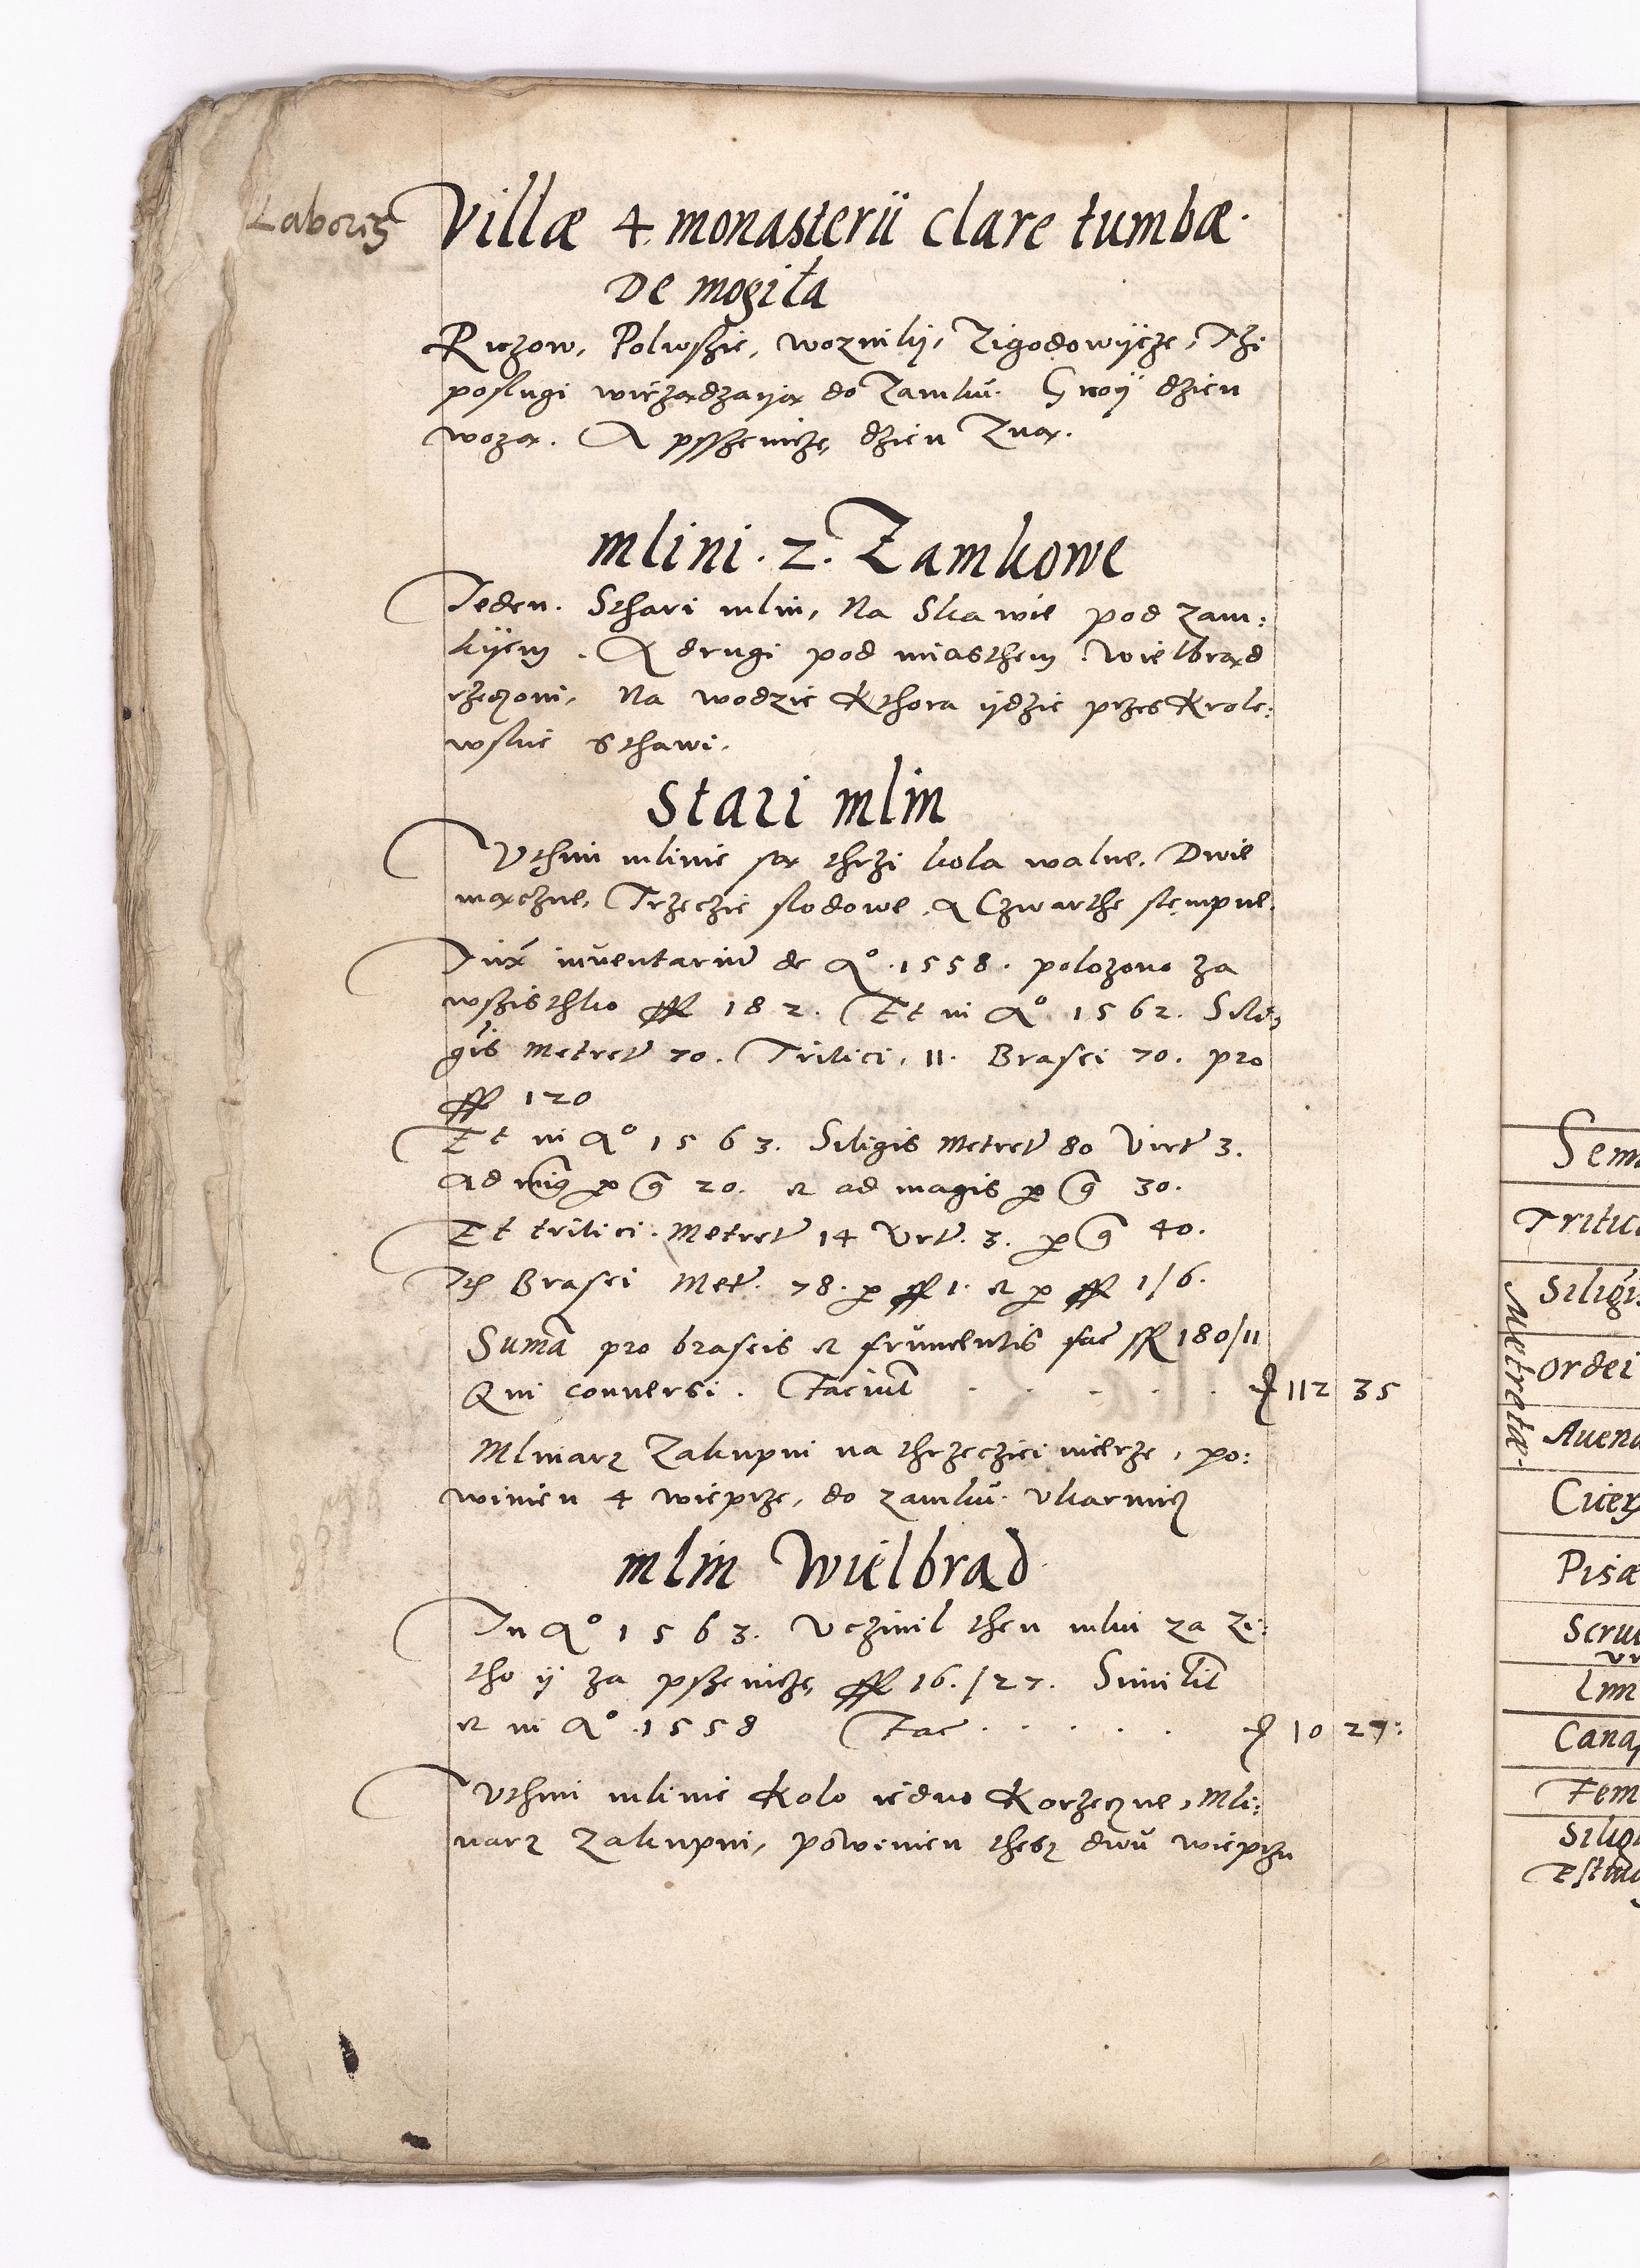 Laboris
Villæ 4 monasterii clare tumbæ.
De mogiła
Riczow, Polwszie, woznikij, Zigodowijcze, Thi
poslugi wicządzaiją do Zamku. Gnoij dzien
wozą. A psszenicze, dzien Zną.
mlini. 2. Zamkowe
Jeden. Sthari mlin, Na Skawie pod zam:
kijem. A drugi pod miasthem. Wielbrąd
rzeczoni, Na wodzie Kthora ijdzie przes Krole:
wskie Sthawi.
Stari mlin
Vthim mlinie są thrzi kola walne. Dwie
mączne, Trzeczie slodowe, a Czwarthe stempne.
Juxta inventariu de Aº. 1558. polozono za
wszisthko ff 182. Et in Aº 1562. Sili:
gis Metret 70. Tritici, 11. Brasei 70. pro
ff 120
Et in Aº 1563. Siligis Metret 80 Virt 3.
Ad ming p g 20. et ad magis p g 30.
Et tritici. Metret 14 Virt. 3. p g 40.
It Brasei Met. 78. p ff 1. et p ff 1/6.
Suma pro braseis et frumentis fac ff 180/11
Qui conversi. Faciunt . . . . . 112 35
Mlinarz Zakupni na thrzecziei mierze, po:
winien 4 wieprze, do zamku. Vkarmicz
mlin Wielbrad
In Aº 1563. Vczinil then mlin za zi:
tho ij za pszenicze, ff 16./27. Similit
et in Aº .1558 Fac . . . . . 10 27:
Vthim mlinie Kolo iedno Korzeczne, Mli:
narz Zakupni, powinien thesz dwu wieprzu
Sem
Tritic
Siligi
Ordei
Avena
Cicer
Pisæ
Metretæ.
Cana
Fem
Silig